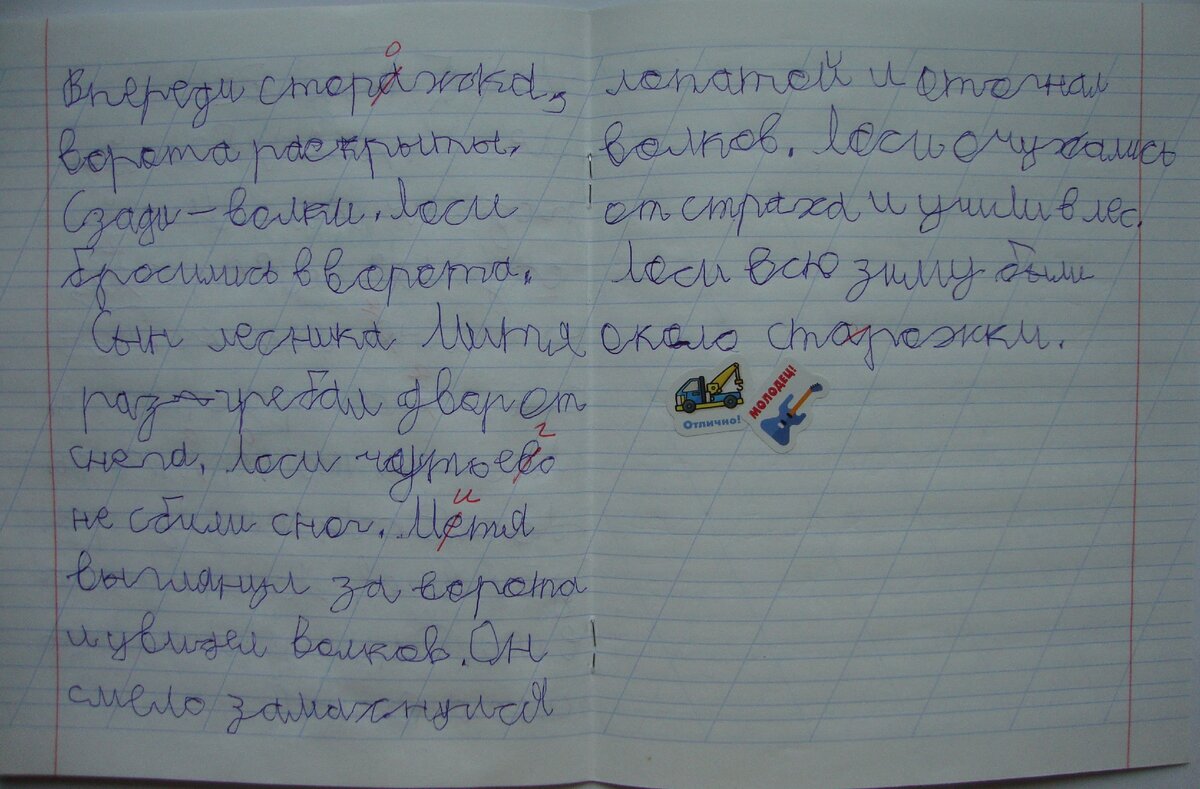 о
Впереди сторажка,
ворота раскрыты.
Сзади – волки. Лоси
бросились в ворота.
Сын лесника Митя
разгребал двор от
г
снега. Лоси чутьево
и
не сбили с ног. Метя
выглянул за ворота
и увидел волков. Он
смело замахнулся
лопатой и отогнал
волков. Лоси очухались
от страха и ушили в лес.
Лоси всю зиму были
около старожки.
Отлично!
МОЛОДЕЦ!